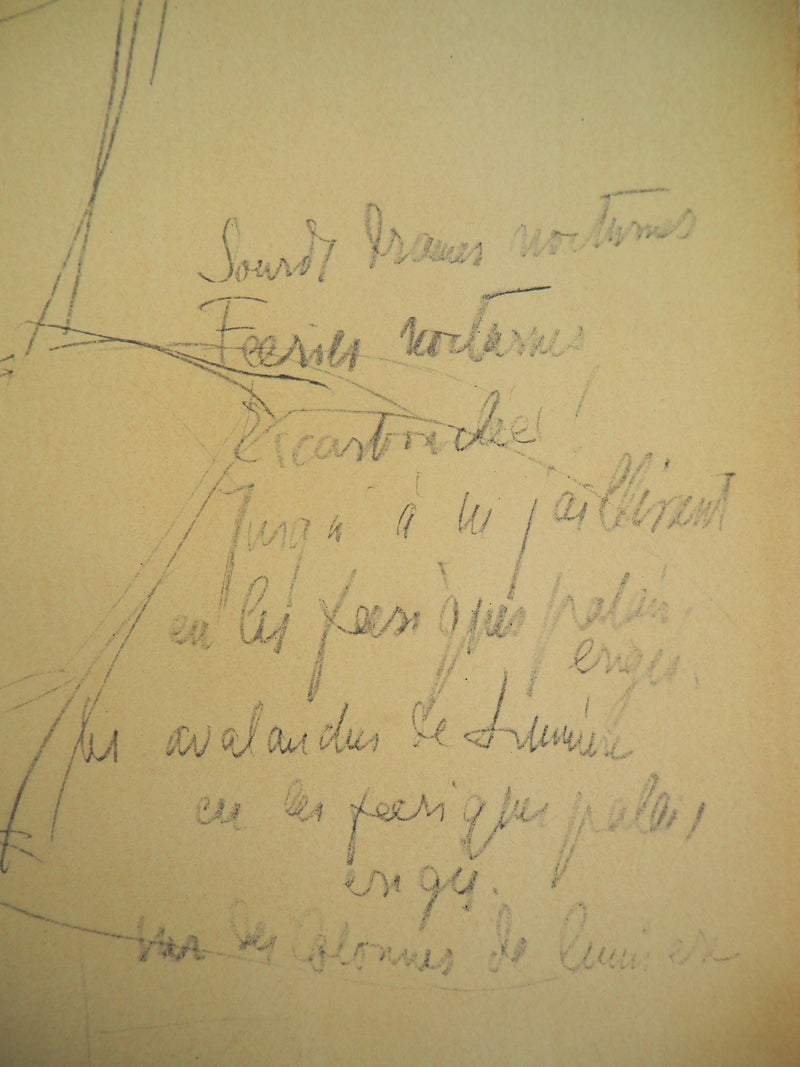 Sourds Drames nocturnes
Feeries nocturnes
Escarbouclée !
Jusqu'à jaillissant
en les feeriques palais,
eriges.
les avalanches de Lumière
en les feeriques palais,
eriges.
sur des Colonnes de lumiere